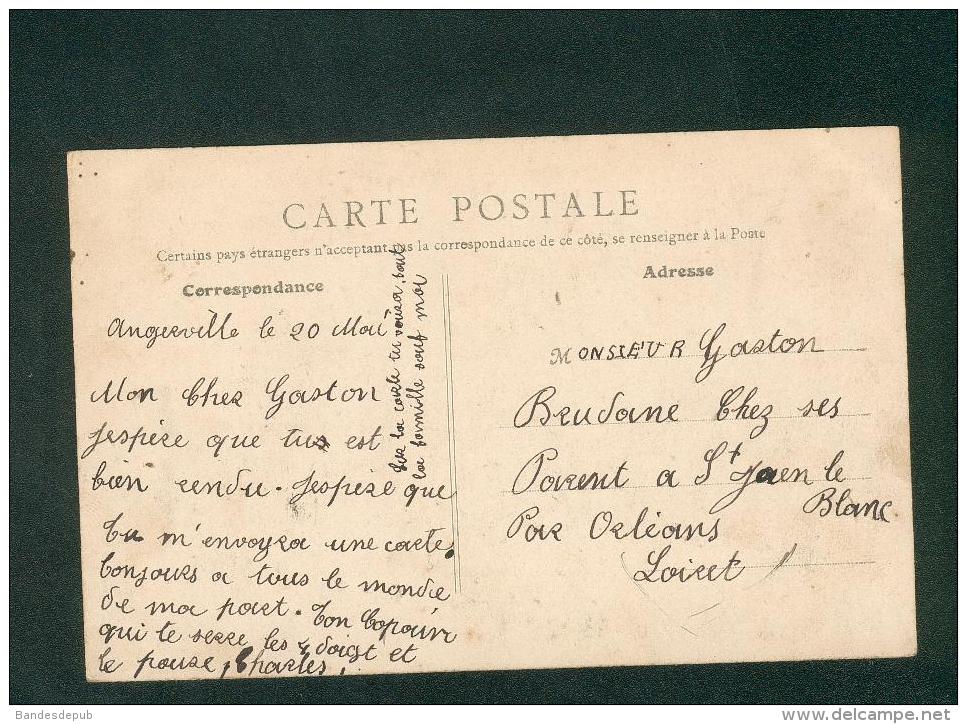 CARTE POSTALE
Certains pays étrangers n'acceptant pas la correspondance de ce côté, se renseigner à la Poste
Correspondance
Angerville le 20 Mai
Mon Cher Gaston
J'espère que tu est
bien rendu. J'espère que
tu m'envoyra une carte.
bonjours a tous le monde
de ma part. Ton Copain
qui te serre les 4 doigt et
le pouze, Charles.
Sur la carte tu voira tout
la famille sauf moi
Adresse
MONSIEUR Gaston
Brudane Chez ses
Parent a St Jaen le
Blanc
Par Orléans
Loiret
Bandesdepub
www.delcampe.net